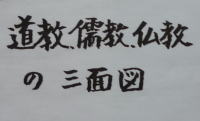 道教、儒教、仏教
の三面図